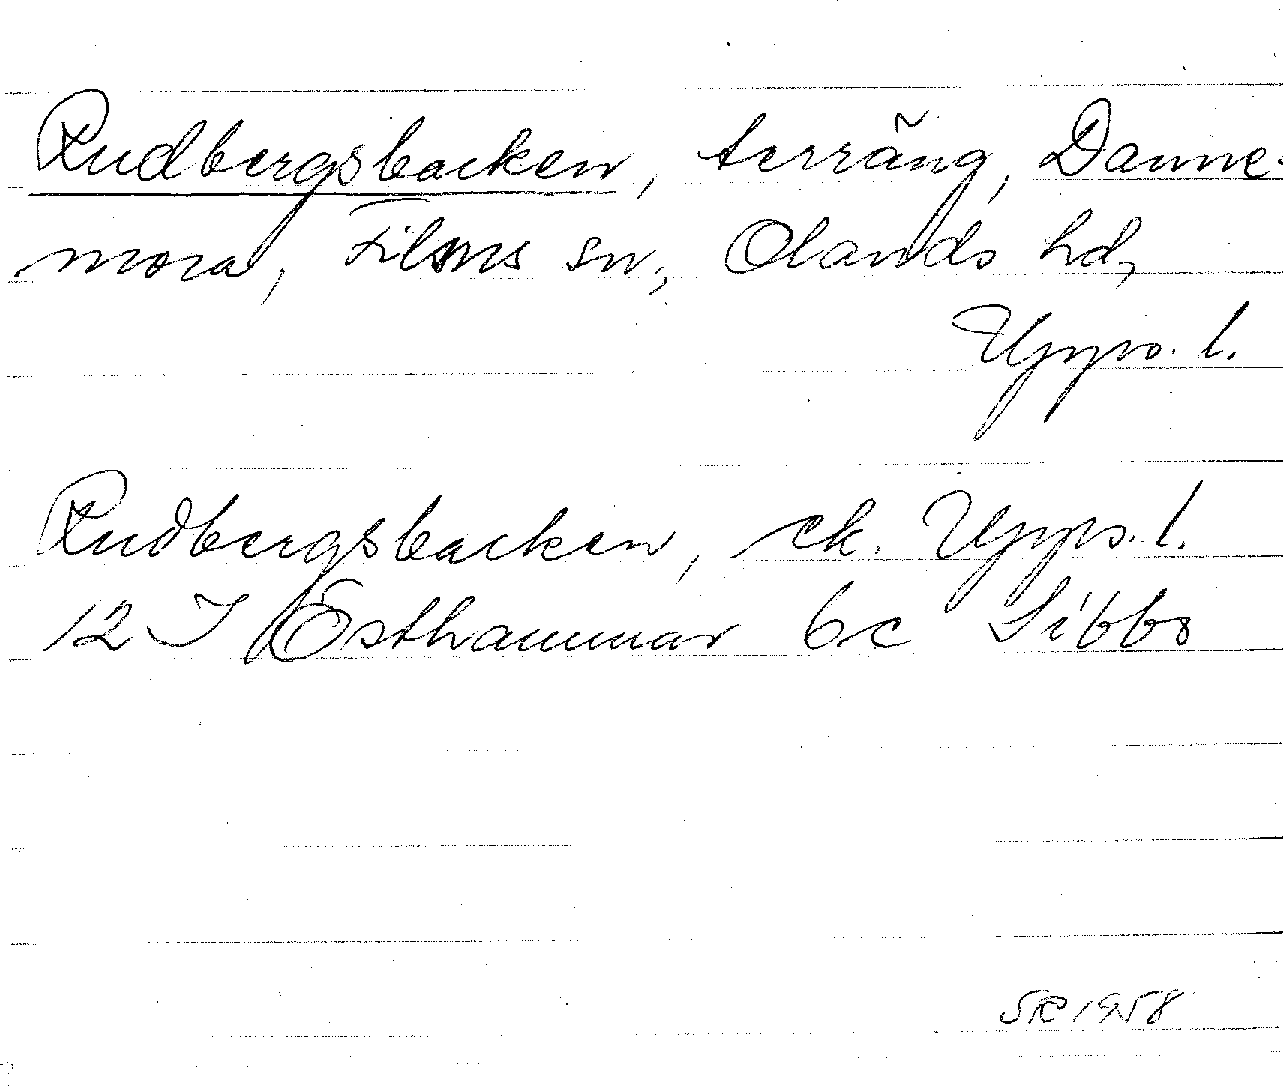 Rudbergsbacken, terräng, Danne-
mora, Films sn, Olands hd,
Upps. l.
Rudbergsbacken, ek. Upps. l.
12 I Östhammar 6c Sibbo
SR 1958